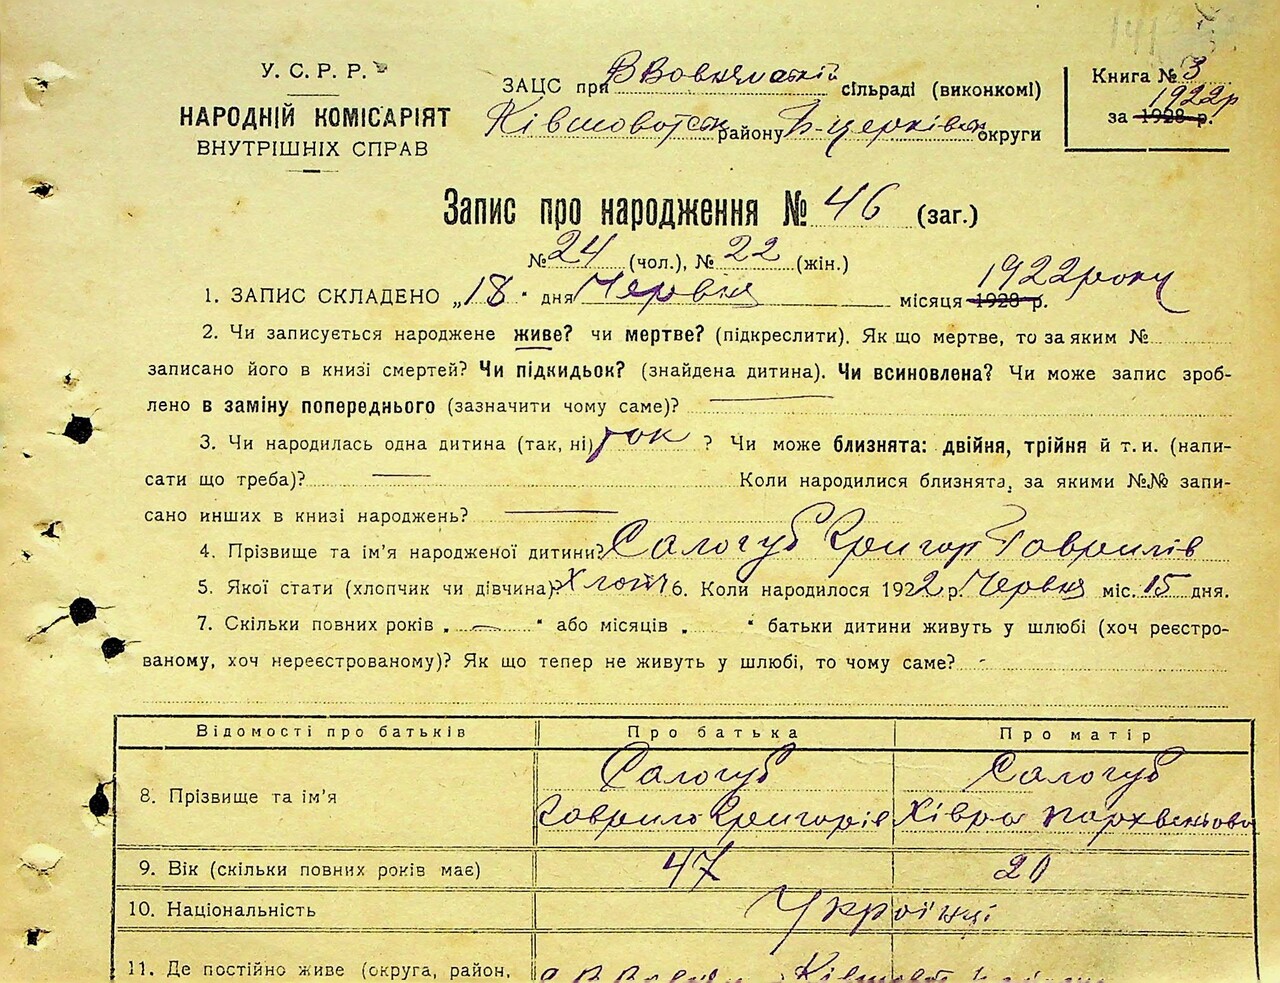 У. С. Р. Р.
НАРОДНІЙ КОМІСАРІЯТ
ВНУТРІШНІХ СПРАВ
ЗАЦС при В Вовнянській сільраді (виконкомі)
Ківшоватськ району Б-церківськ округи
Книга № 3
1922р
за 1928 р.
Запис про народження № 46 (заг.)
№ 24 (чол.), № 22 (жін.)
1. ЗАПИС СКЛАДЕНО „18" дня Червня місяця 1928 р. 1922 року
2. Чи записується народжене живе? чи мертве? (підкреслити). Як що мертве, то за яким №
записано його в книзі смертей? Чи підкидьок? (знайдена дитина). Чи всиновлена? Чи може запис зроб-
лено в заміну попереднього (зазначити чому саме)?
3. Чи народилась одна дитина (так, ні) так ? Чи може близнята: двійня, трійня й т. и. (напи-
сати що треба)? Коли народилися близнята, за якими №№ запи-
сано инших в книзі народжень?
4. Прізвище та ім'я народженої дитини? Салогуб Григор Гаврилів
5. Якої стати (хлопчик чи дівчина)? Хлопч 6. Коли народилося 1922 р. Червня міс. 15 дня.
7. Скільки повних років „ — " або місяців „ " батьки дитини живуть у шлюбі (хоч реєстро-
ваному, хоч нереєстрованому)? Як що тепер не живуть у шлюбі, то чому саме? -
Відомості про батьків Про батька Про матір
8. Прізвище та ім'я Салогуб Гаврило Григорів Салогуб Хівря Пархвентьова
9. Вік (скільки повних років має) 47 20
10. Національність Українці
11. Де постійно живе (округа, район,